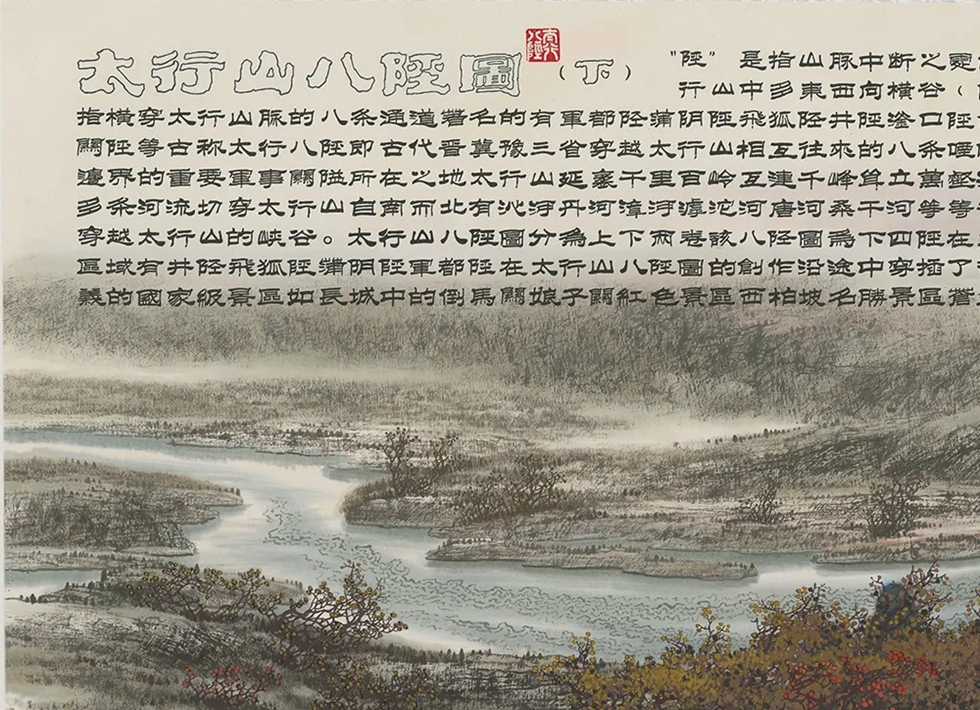 太行山八陘圖（下）
太行八陘
"陘"是指山脉中断之
行山中多東西向橫谷（
指橫穿太行山脉的八条通道著名的有軍都陘蒲阴陘飛狐陘井陘滏口陘
關陘等古称太行八陘即古代晋冀豫三省穿越太行山相互往來的八条
邊界的重要軍事關隘所在之地太行山延袤千里百岭互連千峰耸立萬壑
多条河流切穿太行山自南而北有沁河丹河漳河滹沱河唐河桑干河等
穿越太行山的峡谷。太行山八陘圖分為上下两卷該八陘圖為下四陘在
區域有井陘飛狐陘蒲阴陘軍都陘在太行山八陘圖的創作沿途中穿插了
義的國家級景區如長城中的倒馬關娘子關紅色景區西柏坡名勝景區